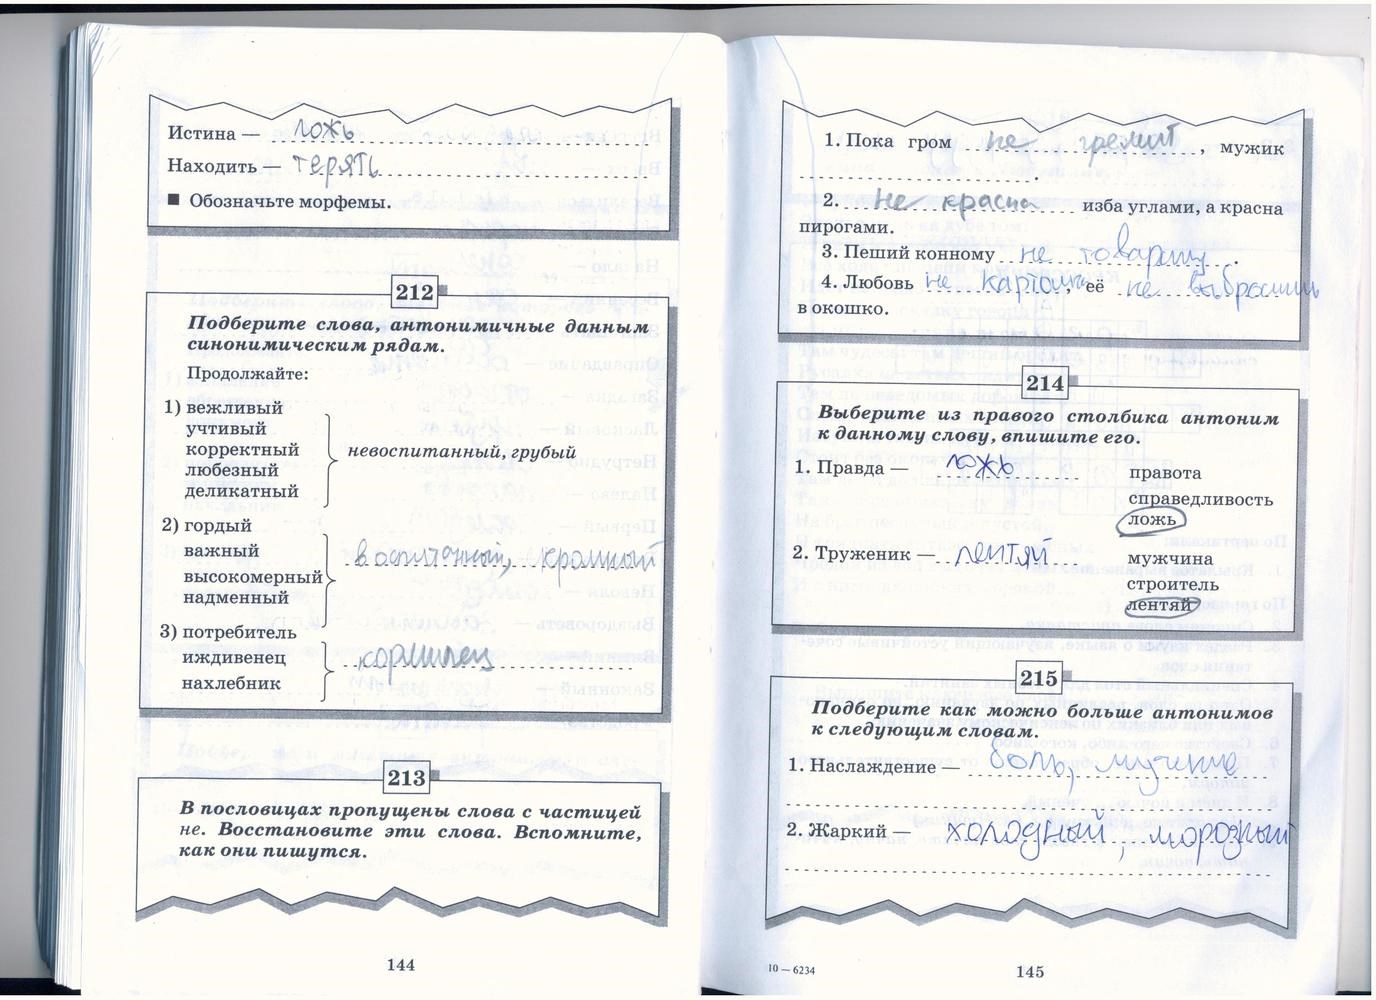 Истина — ложь
Находить — терять
■ Обозначьте морфемы.
212
Подберите слова, антонимичные данным
синонимическим рядам.
Продолжайте:
1) вежливый
учтивый
корректный
любезный
деликатный
невоспитанный, грубый
2) гордый
важный
высокомерный
надменный
воспитанный, скромный
3) потребитель
иждивенец
нахлебник
кормилец
213
В пословицах пропущены слова с частицей
не. Восстановите эти слова. Вспомните,
как они пишутся.
144
1. Пока гром не гремит, мужик
.
2. Не красна изба углами, а красна
пирогами.
3. Пеший конному не товарищ.
4. Любовь не картошка, её не выбросишь
в окошко.
214
Выберите из правого столбика антоним
к данному слову, впишите его.
1. Правда — ложь
правота
справедливость
ложь
2. Труженик — лентяй
мужчина
строитель
лентяй
215
Подберите как можно больше антонимов
к следующим словам.
1. Наслаждение — боль, мучение
2. Жаркий — холодный, морозный
10 — 6234
145